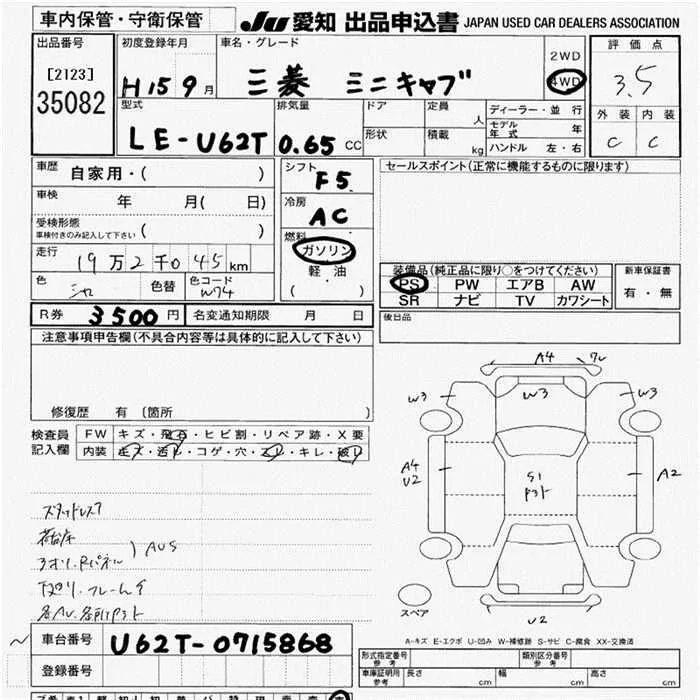 車内保管・守衛保管
JU 愛知 出品申込書 JAPAN USED CAR DEALERS ASSOCIATION
出品番号
[2123]
35082
初度登録年月
H15 9月
車名・グレード
三菱 ミニキャブ
2WD
4WD
評価点
3.5
外装 内装
C C
型式
LE-U62T
排気量
0.65 CC
ドア
形状
定員 人
積載 kg
ディーラー・並行
モデル年式 年
ハンドル 左・右
車歴
自家用・( )
車検 年 月( 日)
受検形態
車検付きのみ記入して下さい ( )
走行
19万2千045km
色 色替 色コード
W74
シフト
F5
冷房
AC
燃料
ガソリン
軽油
( )
セールスポイント(正常に機能するものに限ります)
装備品(純正品に限り○をつけてください)
PS PW エアB AW
SR ナビ TV カワシート
新車保証書
有・無
R券 3500円 名変通知期限 月 日
後日品
注意事項申告欄(不具合内容等は具体的に記入して下さい)
修復歴 有 [箇所 ]
検査員
記入欄
FW キズ・飛石・ヒビ割・リペア跡・X要
内装 キズ・汚れ・コゲ・穴・スレ・キレ・破れ
スタッドレス
荷台床
AUS
A4
W3
W3
W3
A4
U2
S1
A2
U2
スペア
A-キズ E-エクボ U-凹み W-補修跡 S-サビ C-腐食 XX-交換済
車台番号 U62T-0715868
登録番号
形式指定番号
参考
類別区分番号
参考
車庫証明用
参考
長さ cm 幅 cm 高さ cm